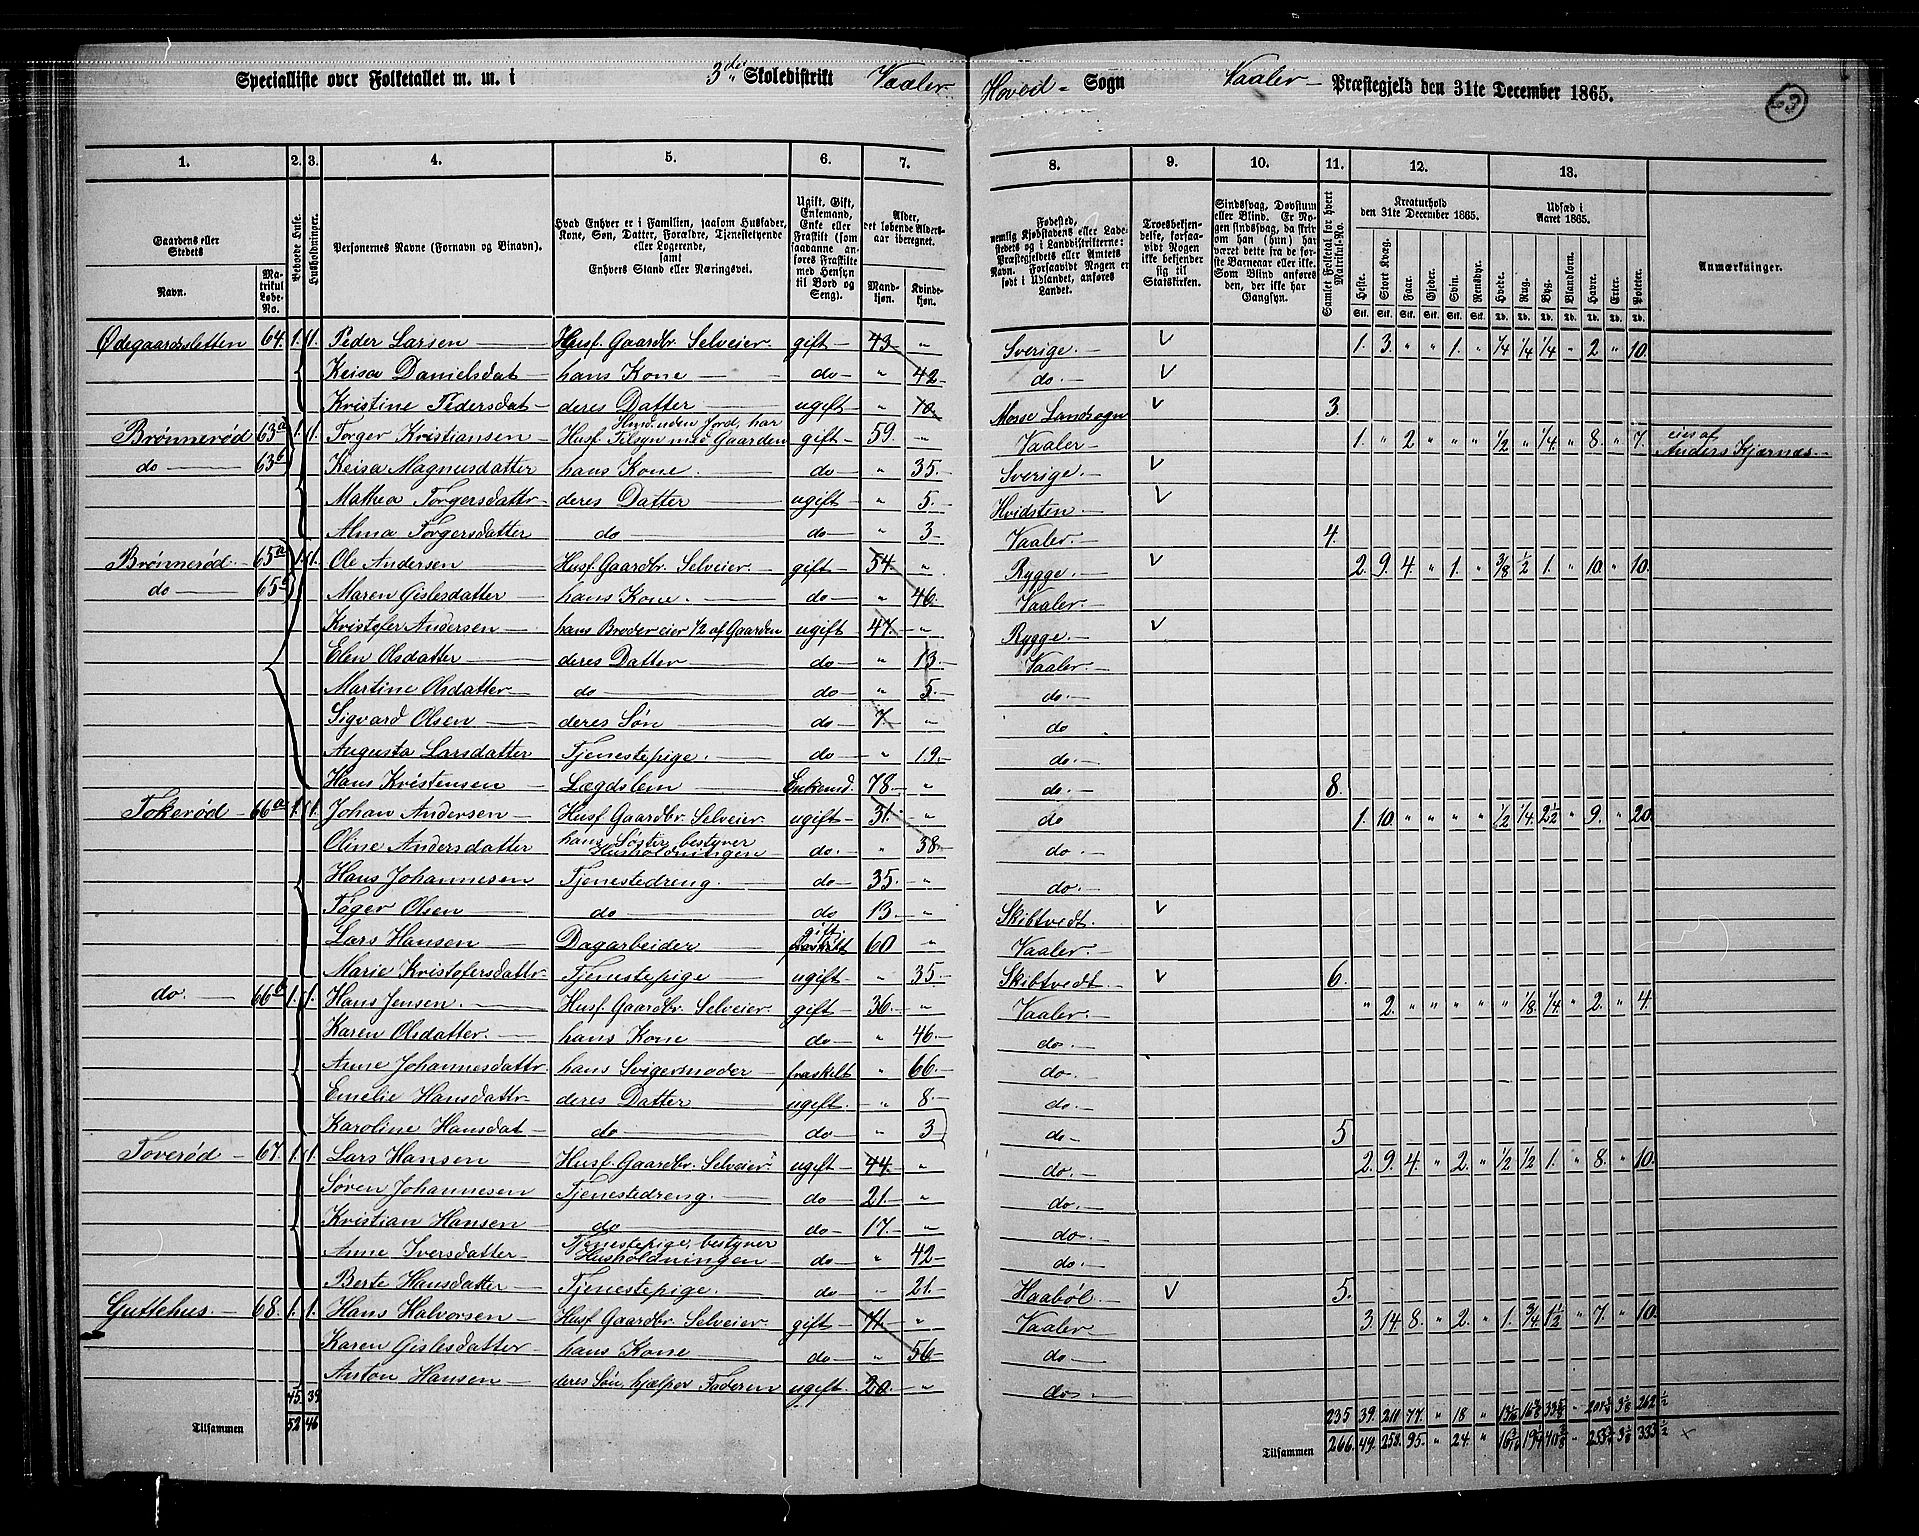 Specialliste over Folketallet m. m. i 3die Skoledistrikt Vaaler Hoved- Sogn Vaaler Præstegjeld den 31te December 1865.
63
1. 2. 3. 4. 5. 6. 7. 8. 9. 10. 11. 12. 13.
Gaardens eller Stedets
Navn.
Matrikul Løbe-No.
Beboede Huse.
Husholdninger.
Personernes Navne (Fornavn og Binavn).
Hvad Enhver er i Familien, saasom Husfader, Kone, Søn, Datter, Forældre, Tjenestetyende eller Logerende, samt Enhvers Stand eller Næringsvei.
Ugift, Gift, Enkemand, Enke eller Fraskilt (som saadanne anføres Fraskilte med Hensyn til Bord og Seng).
Alder, det løbende Aldersaar iberegnet.
Mandkjøn. Kvindekjøn.
Fødested, nemlig Kjøbstadens eller Ladestedets og i Landdistrikterne: Præstegjeldets eller Amtets Navn. Forsaavidt Nogen er født i Udlandet, anføres Landet.
Troesbekjendelse, forsaavidt Nogen ikke bekjender sig til Statskirken.
Sindssvag, Døvstum eller Blind. Er Nogen sindssvag, da skriv om han (hun) har været dette fra de første Barneaar eller ikke. Som Blind anføres den, der ikke har Gangsyn.
Samlet Folketal for hvert Matrikul-No.
Kreaturhold den 31te December 1865.
Heste. Stort Kvæg. Faar. Gjeder. Svin. Rensdyr.
Udsæd i Aaret 1865.
Hvede. Rug. Byg. Blandkorn. Havre. Erter. Poteter.
Stk. Stk. Stk. Stk. Stk. Stk. Td. Td. Td. Td. Td. Td. Td.
Anmærkninger.
Ødegaardsletten 64. 1. 1. Peder Larsen Husf. Gaardbr. Selveier. gift 43 " Sverige. V 1. 3. " " 1. " 1/4 1/4 1/4 " 2 " 10.
Keisa Danielsdat hans Kone do " 42 do. V
Kristine Pedersdat deres Datter ugift " 10 Mosse Landsogn V 3.
Brønnerød 63a 1. 1. Torger Kristiansen Husf. Hmd. uden Jord, har Tilsyn med Gaarden gift 59. " Vaaler 1. " 2 " " " 1/2 " 1/4 " 8. " 7. eies af Anders Kjærnæs
do 63b Keisa Magnusdatter hans Kone. do " 35. Sverige. V
Mathea Torgersdattr deres Datter ugift " 5. Hvidsten. V
Alma Torgersdatter do do " 3 Vaaler. 4.
Brønnerød. 65a 1. 1. Ole Andersen Husf. Gaardbr. Selveier. gift 54 " Rygge. V 2. 9. 4. " 1. " 3/8 1/2 1. " 10 " 10.
do 65b Maren Gislesdatter hans Kone. do " 46. Vaaler.
Kristofer Andersen hans Broder eier 1/2 af Gaarden ugift 47. " Rygge V
Elen Olsdatter deres Datter do " 13. Vaaler.
Martine Olsdatter do do " 5. do.
Sigvard Olsen deres Søn do 7. " do
Augusta Larsdatter Tjenestepige. do " 19. do.
Hans Kristensen Lægdslem Enkemd. 78. " do. 8.
Tokerød 66a 1. 1. Johan Andersen Husf. Gaardbr. Selveier. ugift 31. " do 1. 10. " " " " 1/2 1/4. 2 1/2 " 9. " 20
Oline Andersdatter hans Søster bestyrer Husholdningen do. " 38. do.
Hans Johannesen Tjenestedreng. do 35. " do.
Tøger Olsen do do 13. " Skibtvedt. V
Lars Hansen Dagarbeider gift fraskilt 60 " Vaaler.
Marie Kristofersdattr Tjenestepige ugift " 35. Skibtvedt. V 6.
do. 66b 1. 1. Hans Jensen. Husf. Gaardbr. Selveier. gift 36. " Vaaler. " 2. " " " " " 1/8. 1/4. " 2. " 4.
Karen Olsdatter. hans Kone do " 46. do.
Anne Johannesdattr. hans Svigermoder fraskilt " 66. do.
Emelie Hansdattr deres Datter ugift. " 8. do.
Karoline Hansdat do do " 3 do 5
Toverød 67. 1. 1. Lars Hansen Husf. Gaardbr. Selveier. ugift 44. " do. 2. 9. 4. " 2. " 1/2 1/2 1. " 8. " 10.
Søren Johannesen Tjenestedreng. do 21. " do.
Kristian Hansen do do 17. " do.
Anne Iversdatter Tjenestepige, bestyrer Husholdningen do " 42 do.
Berte Hansdatter Tjenestepige. do " 21. Haabøl. V 5.
Guttehus. 68. 1. 1. Hans Halvorsen Husf. Gaardbr. Selveier gift 71. " Vaaler 3 14 8. " 2. " 1. 3/4 1 1/2 " 7. " 10.
Karen Gislesdatter hans Kone do " 56 do
Anton Hansen deres Søn, hjælper Faderen ugift. 20. " do.
45. 39 235 39. 210 77. " 18 " "
Tilsammen 52 46 Tilsammen 266. 49. 258. 95. " 24. " "